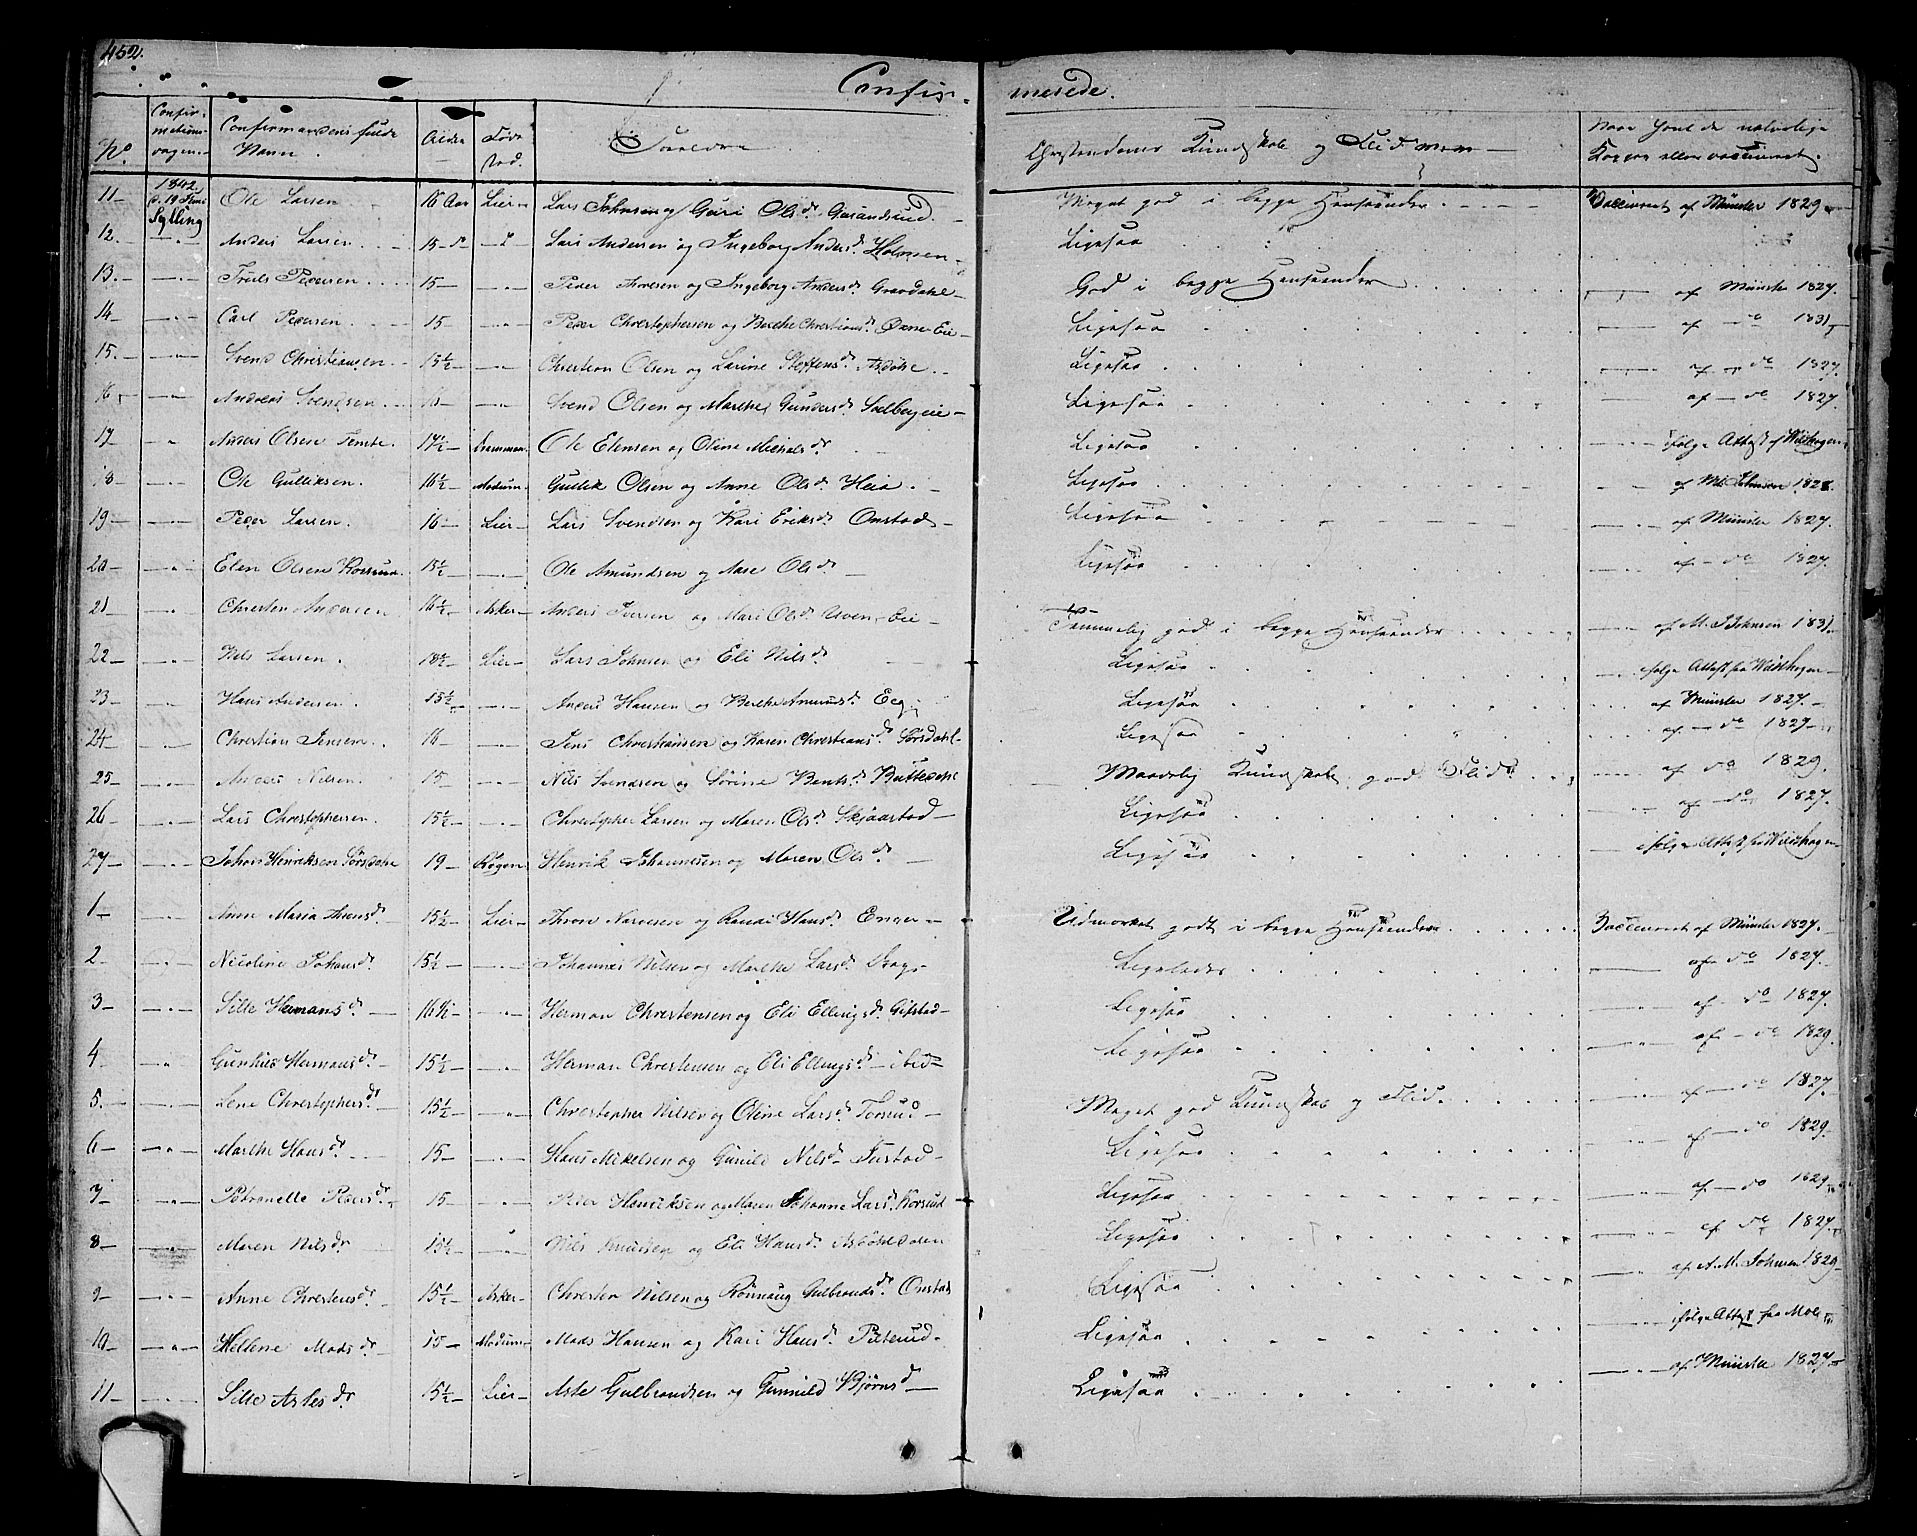 452.
Confir- merede.
No. Confirmations-dagen. Confirmandens fulde Navn. Alder Føde sted. Forældre Christendoms Kundskab og Flid Naar havt de naturlige Kopper eller vaccineret.
11 1842 d. 19 Juni Sylling Ole Larsen 16 Aar Lier Lars Johnsen og Guri Olsd. Meget god i begge Henseender Vaccineret af Münster 1829
12. Anders Larsen 15 Lars Andersen og Ingeborg Andersd. Holmen Ligesaa
13. Truls Pedersen 15 Peder Thoresen og Ingeborg Andersd. Gravdahl God i begge Henseender af Münster 1827.
14 Carl Pedersen 15 Peder Christophersen og Berthe Christiansd. Eie Ligesaa af do 1831
15. Svend Christiansen 15½ Christian Olsen og Larine Steffensd. Asdøhl Ligesaa af do 1827.
16 Anders Svendsen Svend Olsen og Marthe Gundersd. Solbergeie Ligesaa af do 1827.
17 Anders Olsen 17½ Drammen Ole Ellensen og Oline Michelsd. Ligesaa ifølge Attest
18 Ole Gulliksen 16½ Modum Gullik Olsen og Anne Olsd. Heia Ligesaa af M. Johnsen 1828.
19 Peder Larsen 16 Lier Lars Svendsen og Kari Eriksd. Onstad Ligesaa af Münster 1827.
20 Elen Olsen Korsrud 15½ Ole Amundsen og Aase Olsd. Ligesaa af do 1827.
21 Christen Andersen 16½ Asker Anders Iversen og Mari Olsd. Eie Temmelig god i begge Henseender af M. Johnson 1831
22 Nils Larsen 18½ Lier Lars Johnsen og Eli Nilsd. Ligesaa ifølge Attest fra
23 Hans Andersen 15½ Anders Hansen og Berthe Amundsd. Egg Ligesaa af Münster 1827.
24 Christian Jensen 16 Jens Christiansen og Karen Christiansd. Sørsdahl Ligesaa af do 1827
25 Anders Nilsen 15 Nils Svendsen og Sørine Bentsd. Butterdahl Maadelig Kundskab, god Flid af do 1829.
26 Lars Christophersen 15½ Christopher Larsen og Maren Olsd. Skjaarstad Ligesaa af do 1827.
27 Johan Henriksen Sørsdahl 19 Røgen Henrik Johannesen og Maren Olsd. Ligesaa ifølge Attest fra
1 Anne Maria Thronsd. 15½ Lier Thron Narvesen og Randi Hansd. Enger Udmærket godt i begge Henseender Vaccineret af Münster 1827.
2 Nicoline Johansd. 15½ Johannes Nilsen og Marthe Larsd. Ligeledes af do 1827.
3 Sille Hermansd. 16½ Herman Christensen og Eli Ellingsd. Gifstad Ligesaa af do 1827.
4 Gunhild Hermansd. 15½ Herman Christensen og Eli Ellingsd. ibid Ligesaa af do 1829.
5. Lene Christophersd. 15½ Christopher Nilsen og Oline Larsd. Torsrud Meget god Kundskab og Flid. af do 1827.
6 Marthe Hansd. 15 Hans Mikelsen og Gunild Nilsd. Tustad Ligesaa af do 1829.
7 Petronelle Pedersd. 15 Peder Henriksen og Maren Johanne Larsd. Korsrud Ligesaa af do 1829
8 Maren Nilsd. 15½ Nils Knudsen og Eli Hansd. Ligesaa af do 1827.
9 Anne Christensd. 15½ Asker Christen Nilsen og Rønnaug Gulbrandsd. Onstad Ligesaa af A. M. Johnsen 1829
10 Hellene Madsd. 15 Modum Mads Hansen og Kari Hansd. Putterud Ligesaa ifølge Attest fra Moe
11 Sille Aslesd. 15½ Lier Asle Gulbrandsen og Gunnild Bjørnsd. Ligesaa af Münster 1827